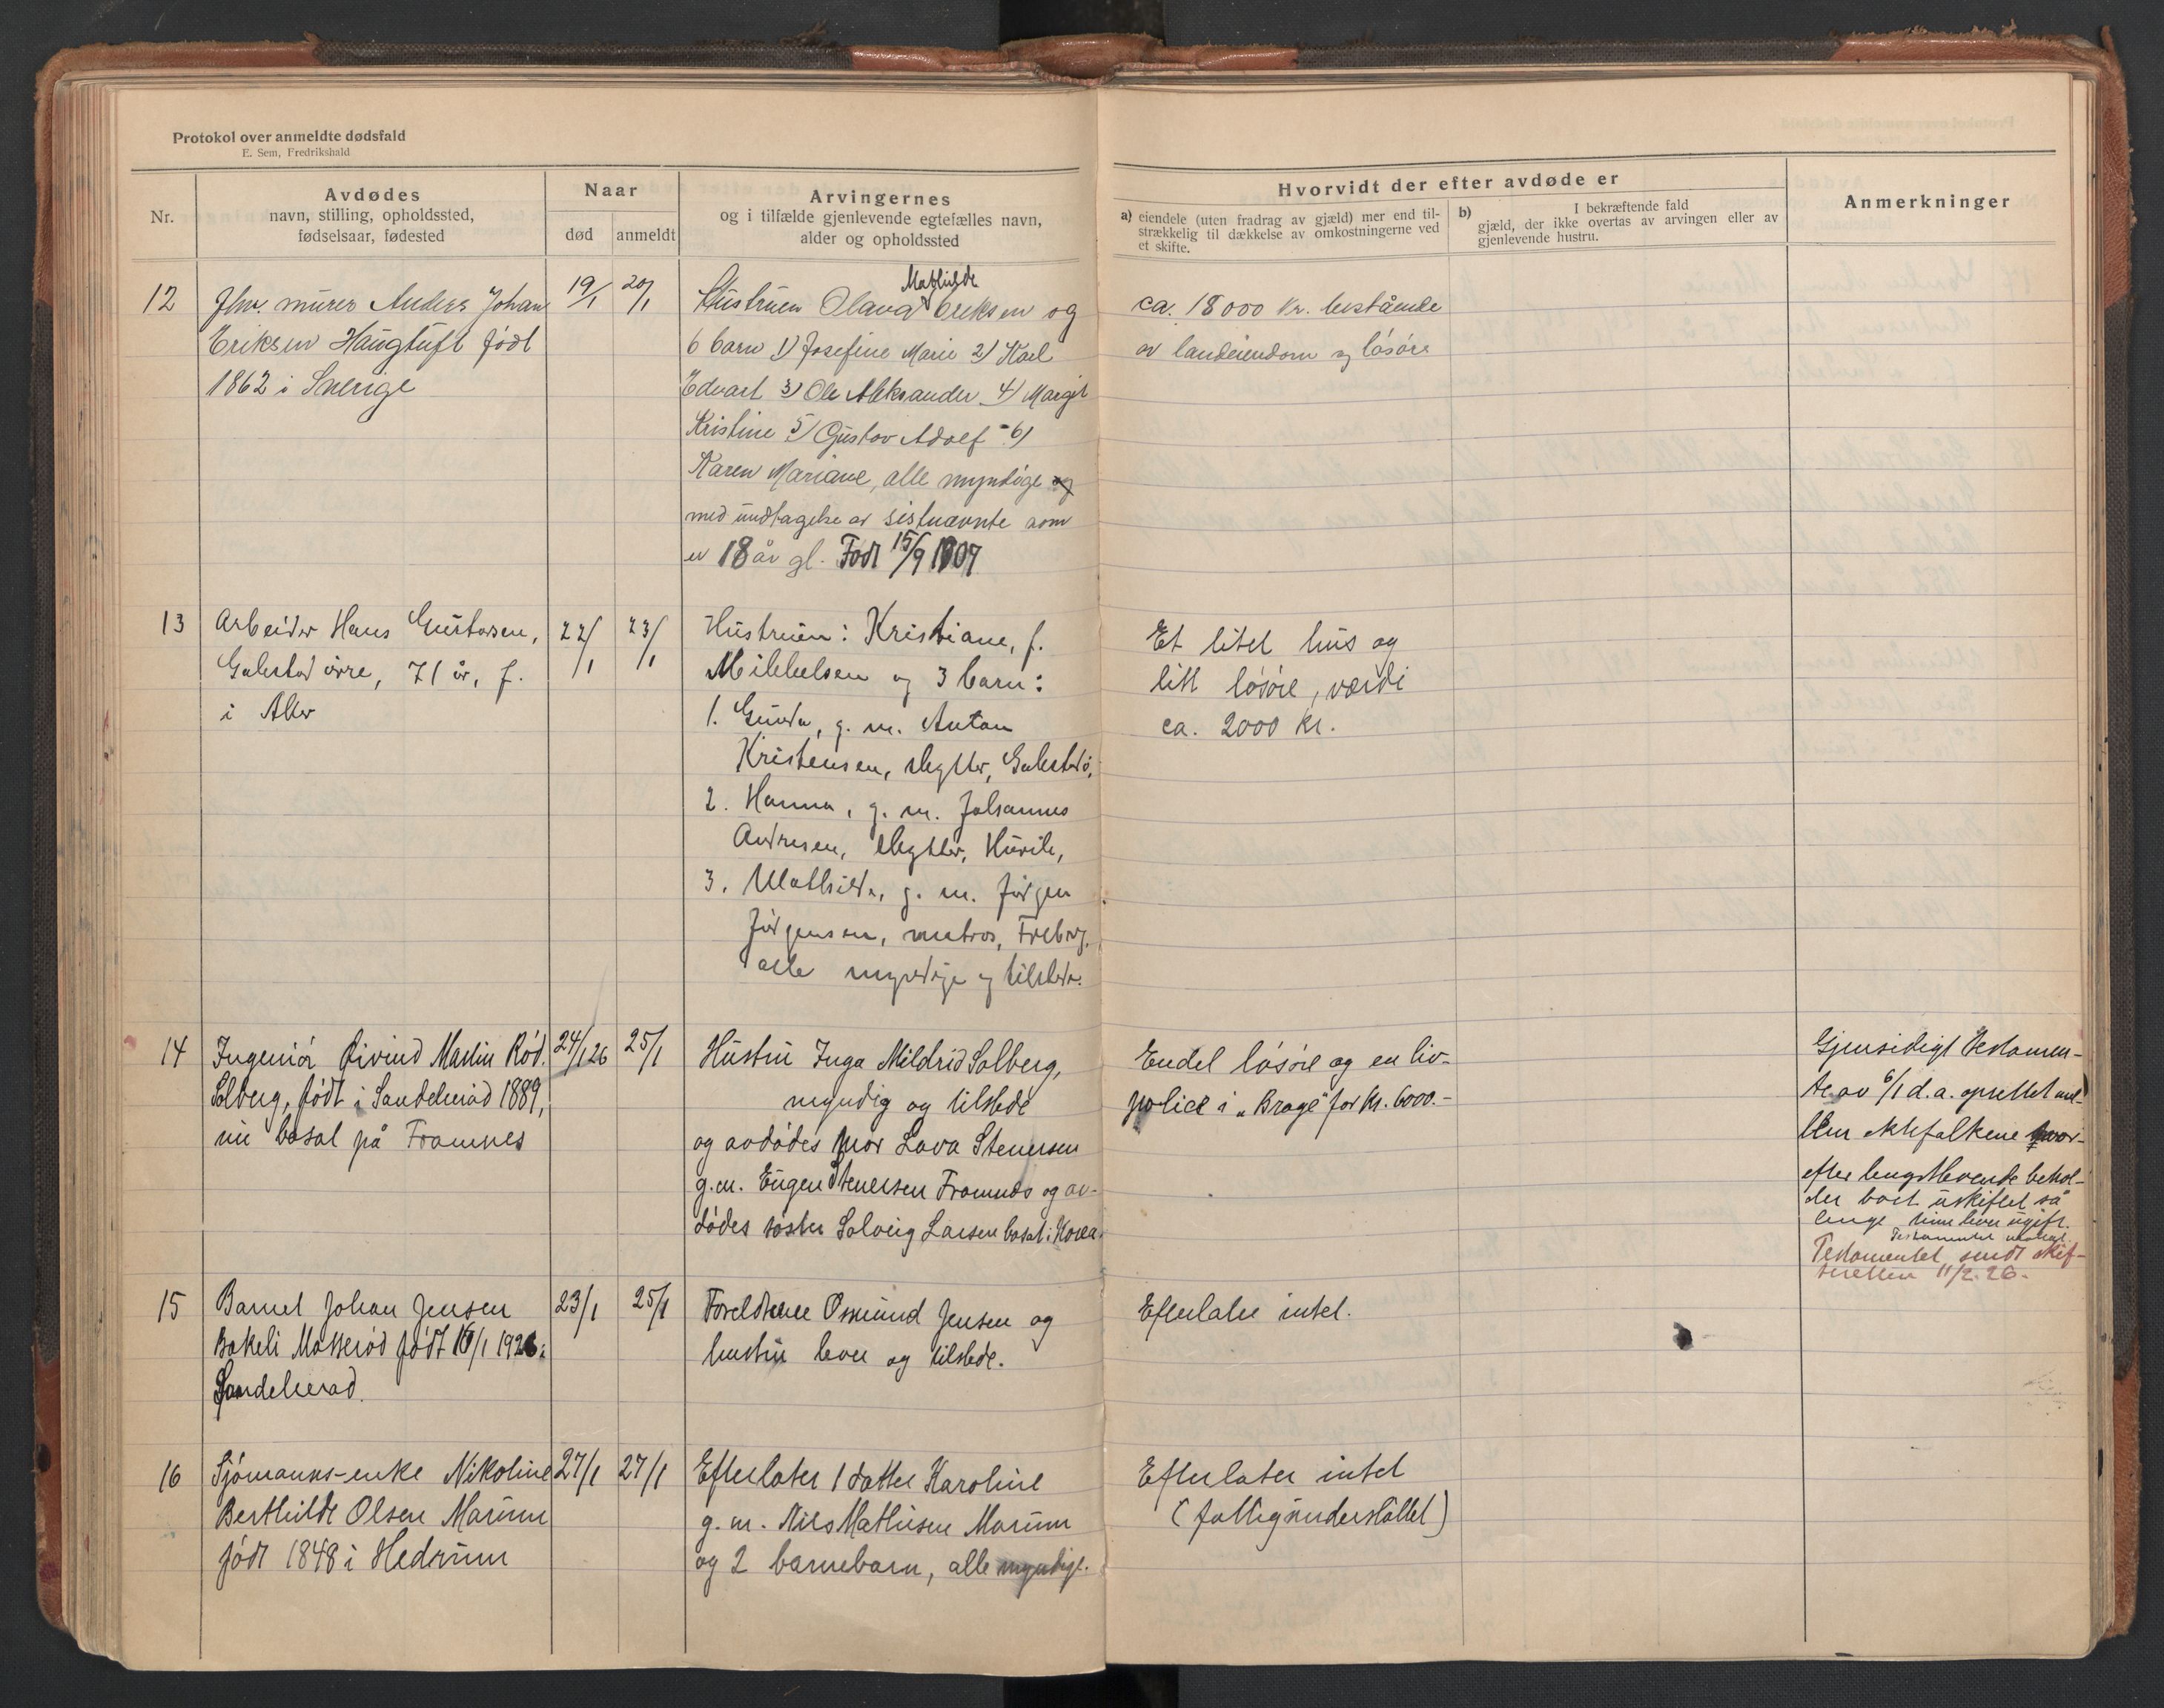 Protokol over anmeldte dødsfald
E. Sem, Fredrikshald
Nr.
Avdødes
navn, stilling, opholdssted,
fødselsaar, fødested
Naar
død
anmeldt
Arvingernes
og i tilfælde gjenlevende egtefælles navn,
alder og opholdssted
Hvorvidt der efter avdøde er
a) eiendele (uten fradrag av gjæld) mer end til-
strækkelig til dækkelse av omkostningerne ved
et skifte.
b) I bekræftende fald
gjæld, der ikke overtas av arvingen eller av
gjenlevende hustru.
Anmerkninger
12
Fhv. murer Anders Johan
Eriksen Haugtuft født
1862 i Sverige
19/1
20/1
Mathilde
Hustruen Olava Eriksen og
6 barn 1) Josefine Marie 2) Karl
Edvart 3) Ole Aleksander 4) Margit
Kristine 5) Gustav Adolf 6)
Karen Mariane, alle myndige og
med undtagelse av sistnævnte som
er 18 år gl. Født 15/9 1907
ca. 18000 kr. bestående
av landeiendom og løsøre
13
Arbeider Hans Gustavsen,
Galestad øvre, 71 år, f.
i
22/1
23/1
Hustruen: Kristiane, f.
Mikkelsen og 3 barn:
1. Gunda, g. m. Anton
Kristensen, slegtler, Galestad ø,
2. Hanna, g. m. Johannes
Andresen, slegtler,
3. Mathilda, g. m. Jørgen
Jørgensen, matros, Freberg,
alle myndige og tilstede.
Et litet hus og
litt løsøre, værdi
ca. 2000 kr.
14
Ingeniør Øivind Martin Rød.
Solberg, født i Sandeherad 1889,
nu bosat på Framnes
24/1 26
25/1
Hustru Inga Mildrid Solberg,
myndig og tilstede
og avdødes mor Lava Stenersen
g.m. Eugen Stenersen Framnes og av-
dødes søster Solveig Larsen bosat i Korea.
Endel løsøre og en liv-
police i „Brage" for kr. 6000.-
Gjensidigt testamen-
te av 6/1 d.a. oprettet mel-
lem ektefolkene hvor-
efter lengstlevende behol-
der boet uskiftet så
lenge hun lever ugift.
Testamentet
Testamentet sendt skif-
teretten 11/2. 26.
15
Barnet Johan Jensen
Bakeli Mosserød født 10/1 1926 i
Sandeherad.
23/1
25/1
Foreldrene Osmund Jensen og
hustru lever og tilstede.
Efterlater intet.
16
Sjømanns-enke Nikoline
Berthilde Olsen Marum
født 1848 i Hedrum
27/1
27/1
Efterlater 1 datter Karoline
g. m. Nils Mathisen Marum
og 2 barnebarn, alle myndige.
Efterlater intet
(fattigunderstøttet)